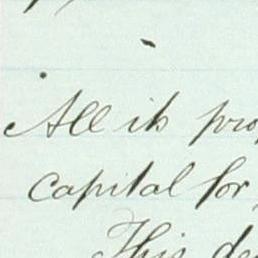 All its pro
capital for
This de